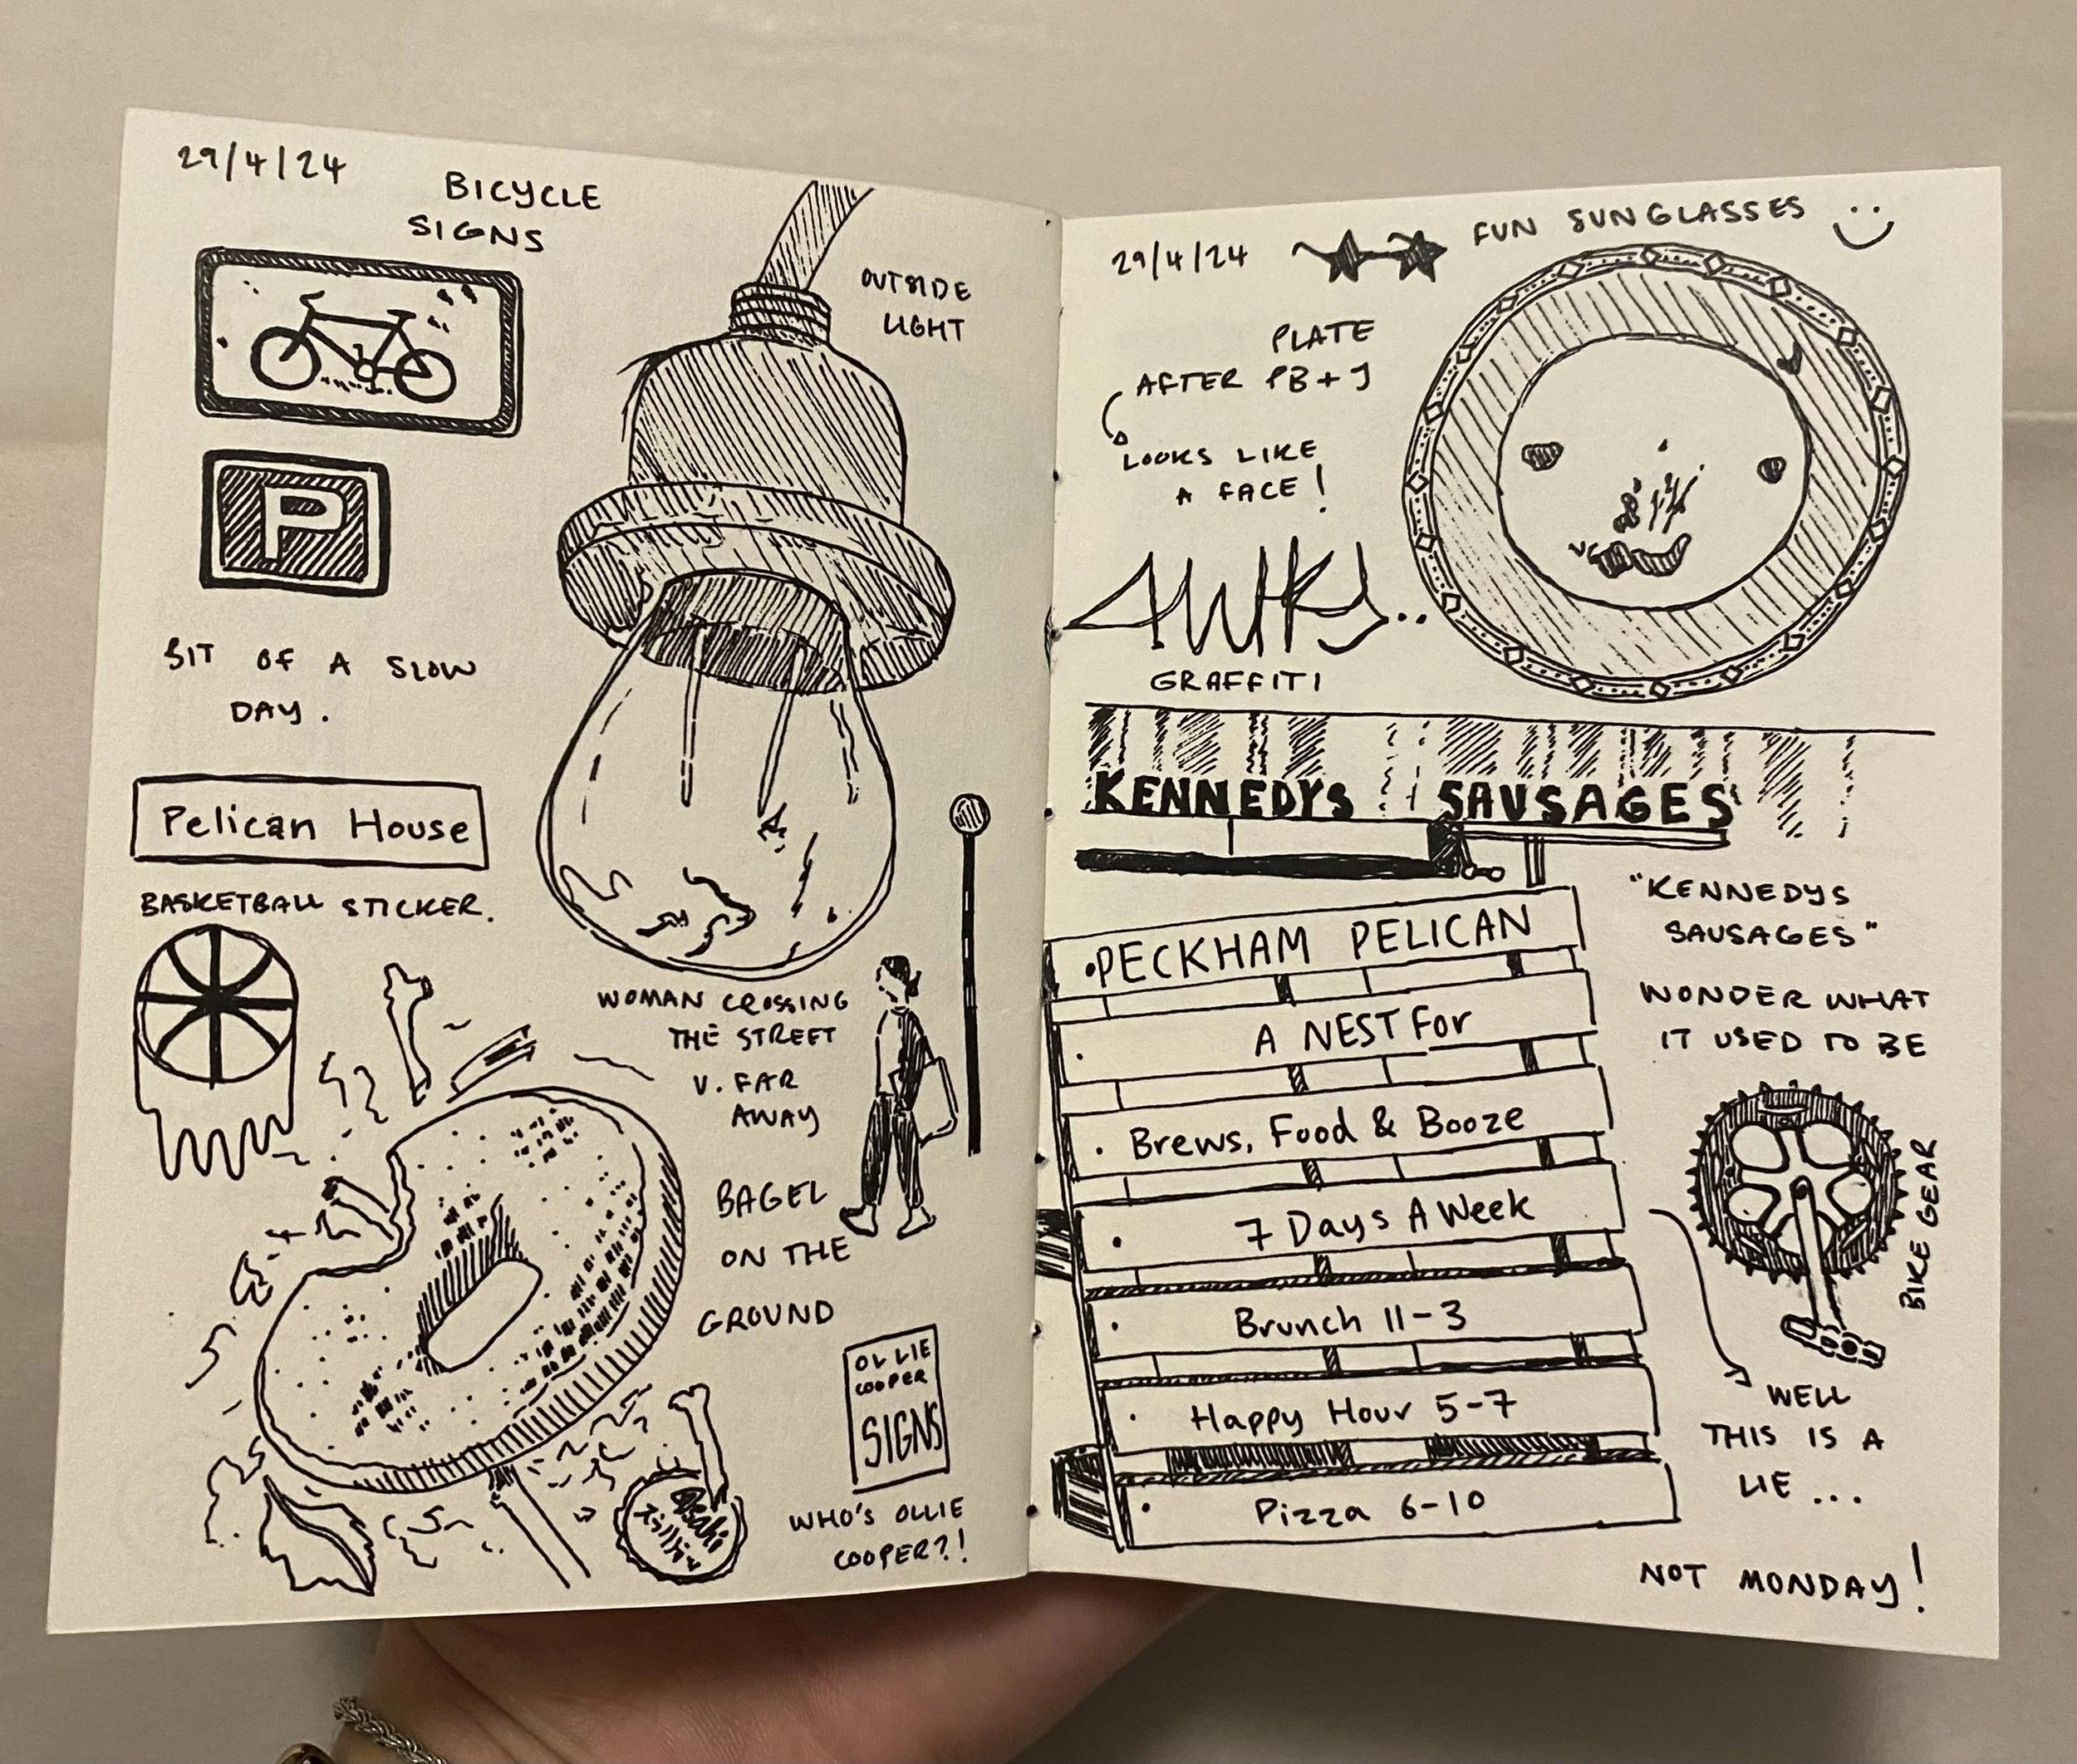 29/4/24
BICYCLE
SIGNS
OUTSIDE
LIGHT
P
BIT OF A SLOW
DAY.
Pelican House
BASKETBALL STICKER.
WOMAN CROSSING
THE STREET
V. FAR
AWAY
BAGEL
ON THE
GROUND
OLLIE
COOPER
SIGNS
Asahi
WHO'S OLLIE
COOPER?!
29/4/24
FUN SUNGLASSES
PLATE
AFTER PB+J
LOOKS LIKE
A FACE!
GRAFFITI
KENNEDYS SAUSAGES
"KENNEDYS
SAUSAGES"
WONDER WHAT
IT USED TO BE
PECKHAM PELICAN
A NEST For
Brews, Food & Booze
7 Days A Week
Brunch 11-3
Happy Hour 5-7
Pizza 6-10
BIKE GEAR
WELL
THIS IS A
LIE...
NOT MONDAY!